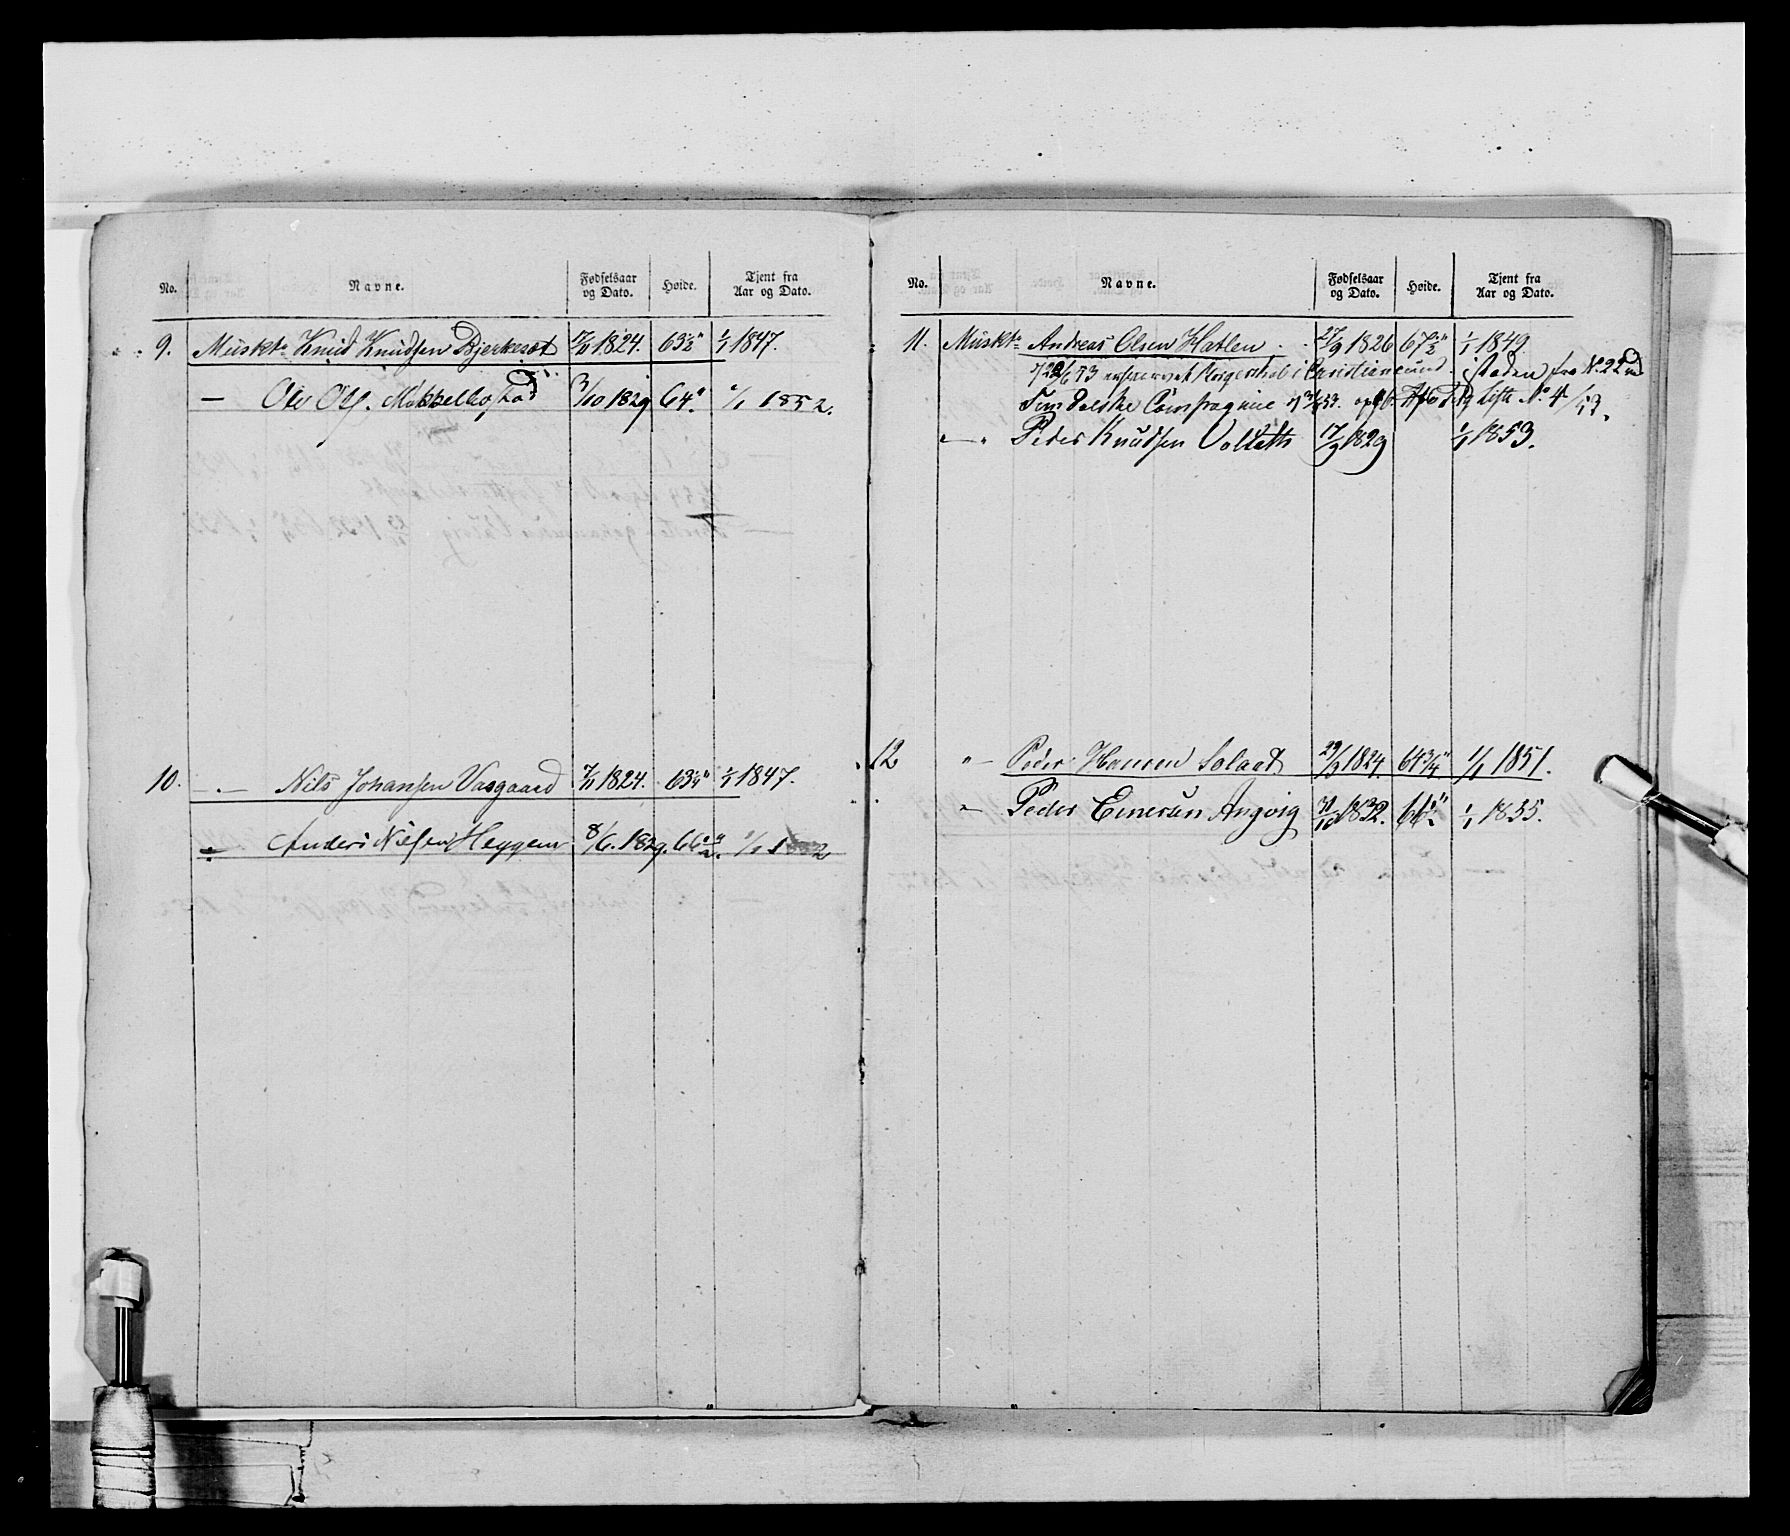 No. Navne. Fødselsaar og Dato. Høide. Tjent fra Aar og Dato.
9. Muskt. Knud Knudsen Bjerkeset 1824. 63½" 1/1 1847.
— Ole Ols. Mekkelbostad 3/10 1829 64" 1/1 1852.
10. —"— Nils Johansen Vasgaard 1824. 63¼" 1/1 1847.
Anders Nilsen Heggem 8/6. 1829. 66½" 1/1
No. Navne. Fødselsaar og Dato. Høide. Tjent fra Aar og Dato.
11. Muskt. Andreas Olsen Hatlen 27/9 1826 67½" 1/1 1849
i Christiansund. istaden fra No. 22
Compagnie Liste No. 4/13.
—"— Peder Knudsen 17/9 1829 1/1 1853.
12 "— Peder Hansen Solaat 29/9 1824. 64¾" 1/1 1851.
"— Peder Angvig 1832. 66½" 1/1 1855.